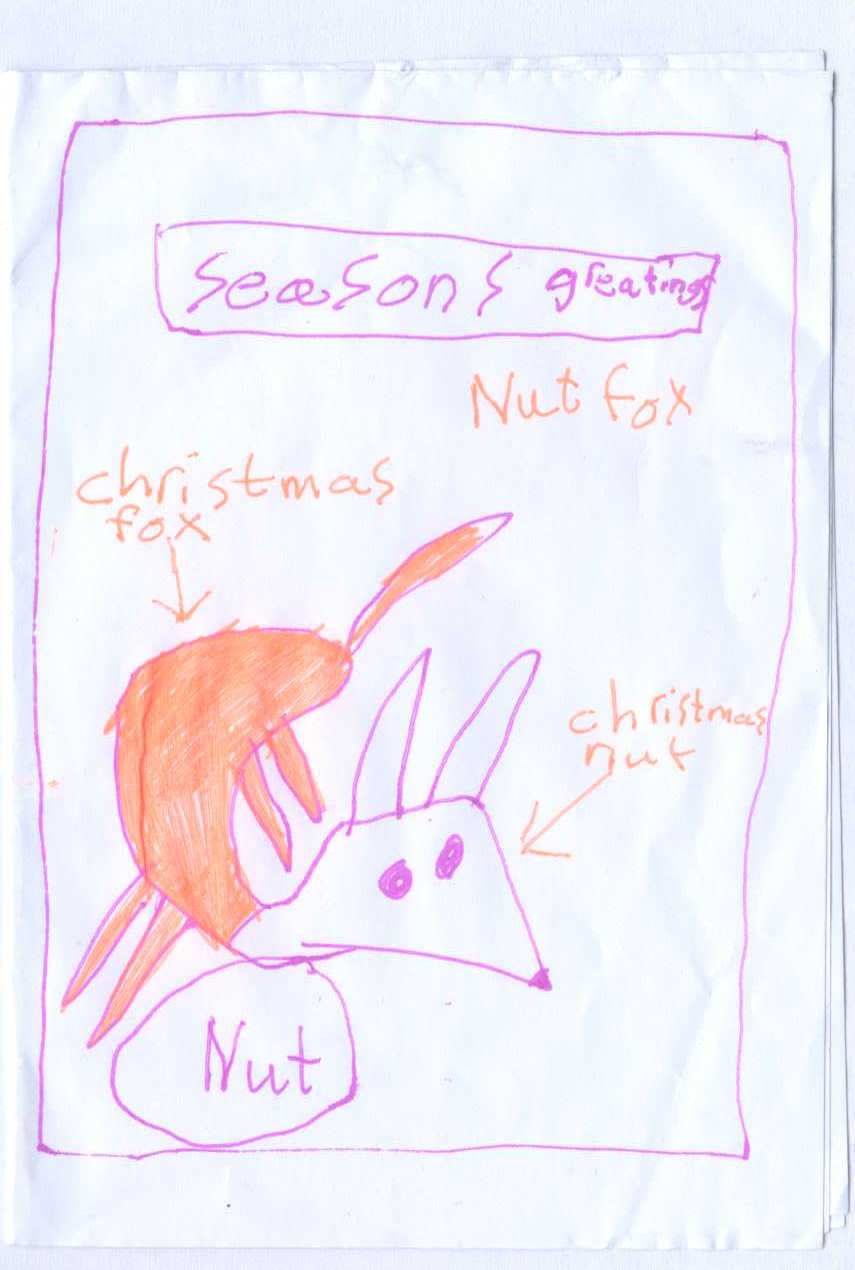 seasons greatings
Nut fox
christmas
fox
christmas
nut
Nut